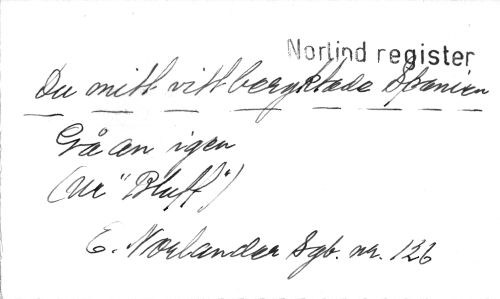 Norlind register
Du mitt vitt beryktade Spanien
Gå an igen
(ur "Bluff")
E. Norlander Sgb. nr. 126